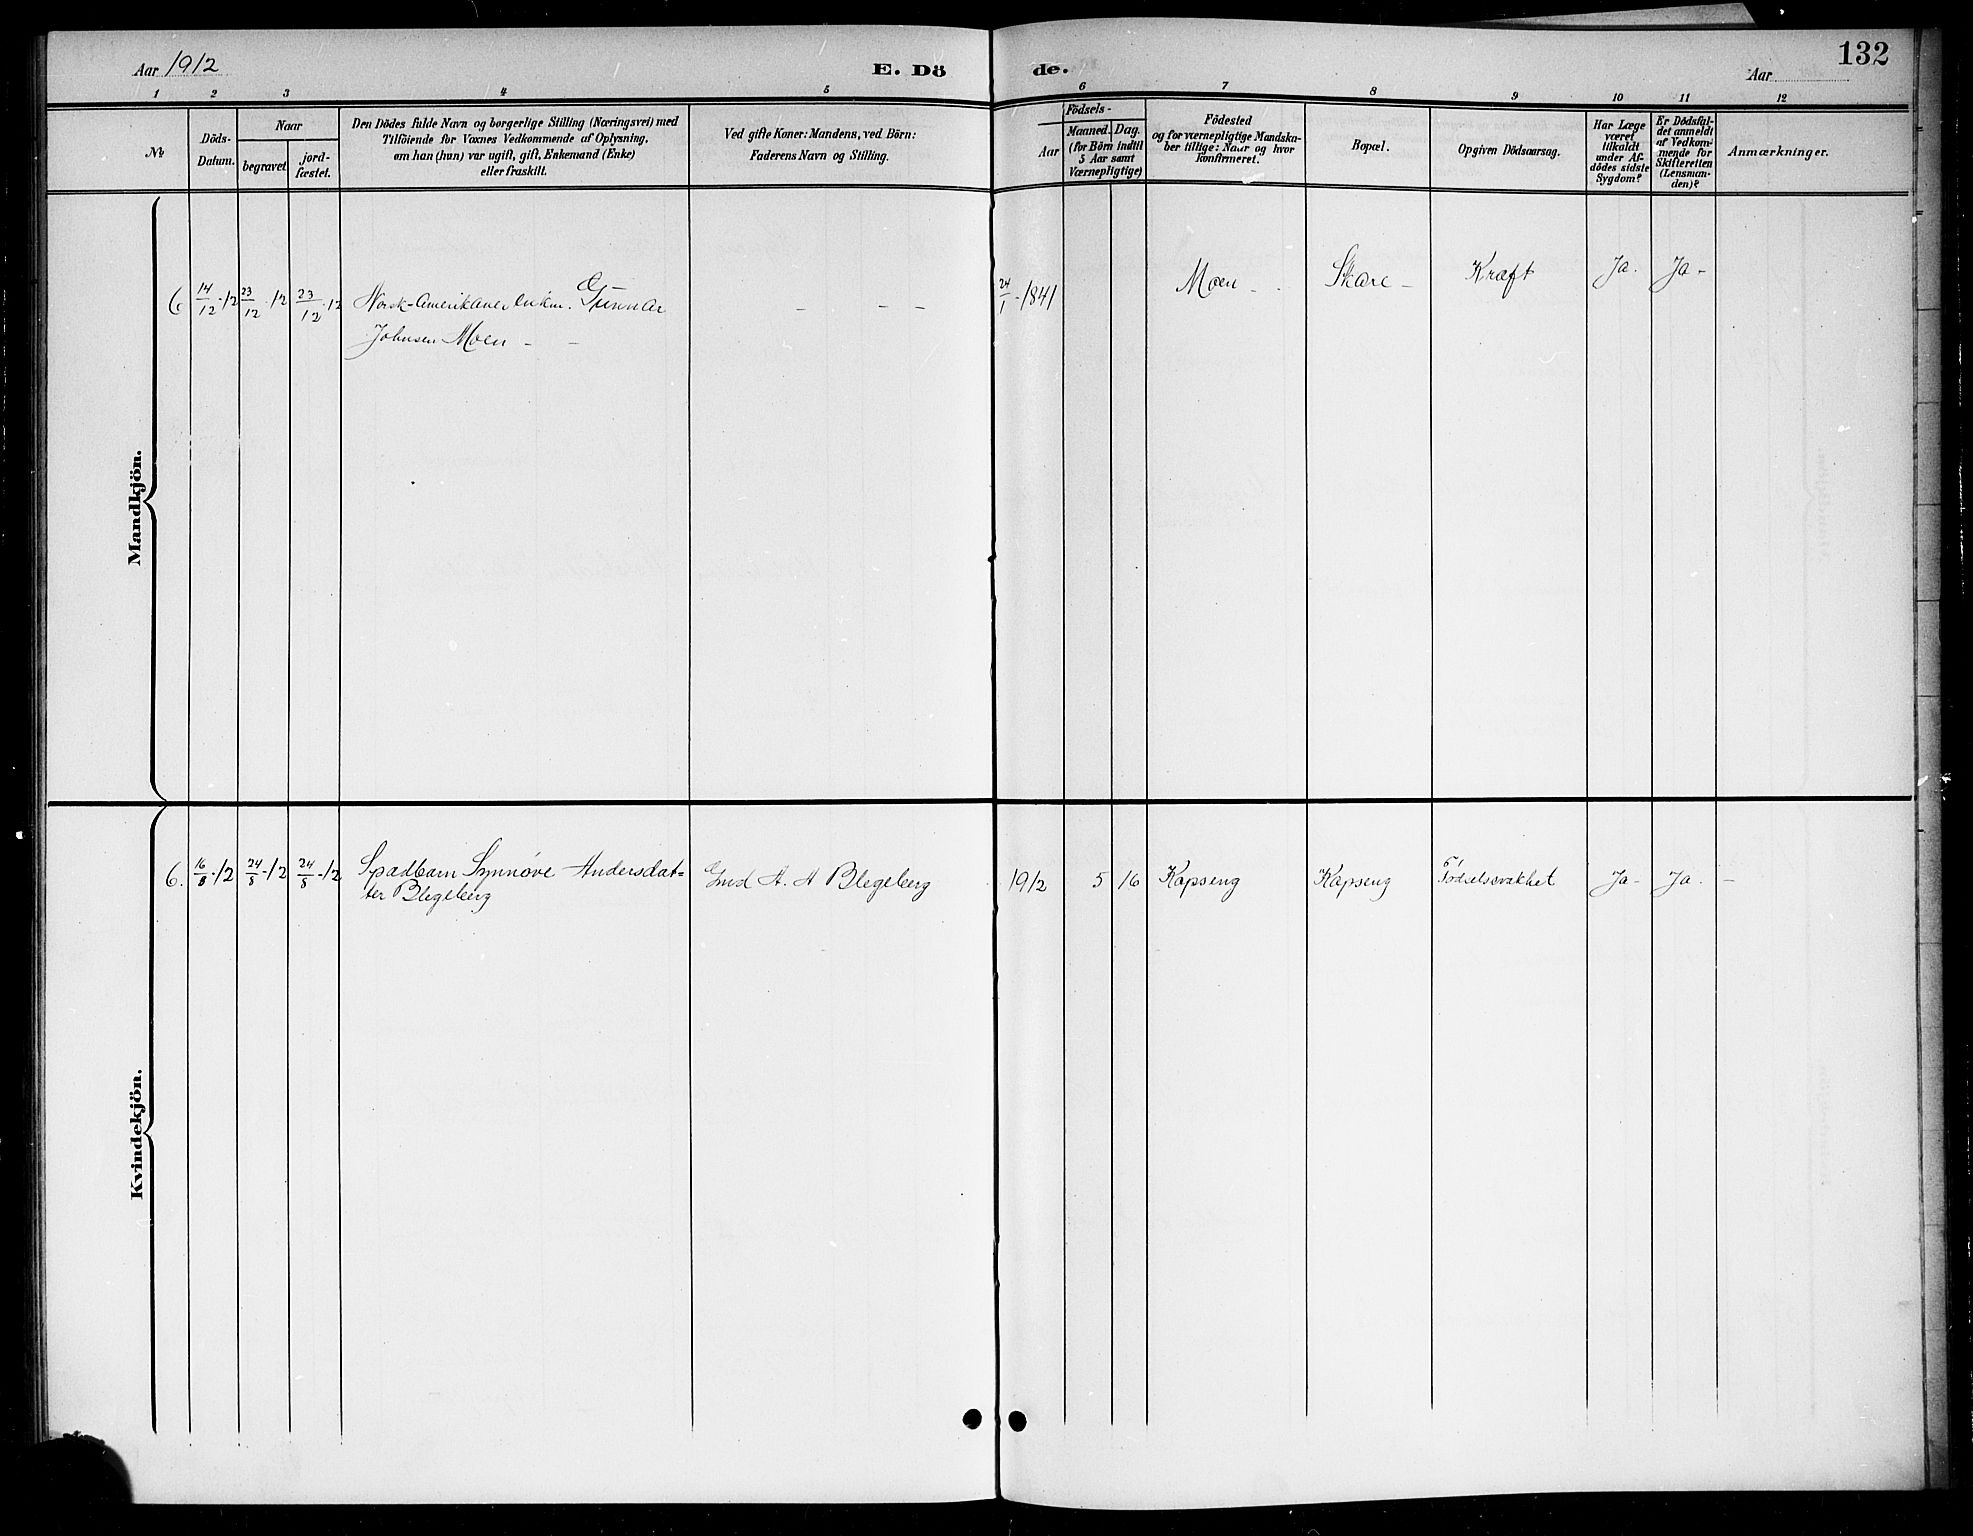 Aar 1912
E. Dö
de.
Aar
132
1 2 3 4 5
6 7 8 9 10 11 12
№
Döds-
Datum.
Naar
begravet
jord-
fæstet.
Den Dödes fulde Navn og borgerlige Stilling (Næringsvei) med
Tilföiende for Voxnes Vedkommende af Oplysning,
om han (hun) var ugift, gift, Enkemand (Enke)
eller fraskilt.
Ved gifte Koner: Mandens, ved Börn:
Faderens Navn og Stilling.
Födsels-
Aar
Maaned. Dag.
(for Börn indtil
5 Aar samt
Værnepligtige)
Födested
og for værnepligtige Mandska-
ber tillige: Naar og hvor
konfirmeret.
Bopæl.
Opgiven Dödsaarsag.
Har Læge
været
tilkaldt
under Af-
dödes sidste
Sygdom?
Er Dödsfal-
det anmeldt
af Vedkom-
mende for
Skifteretten
(Lensman-
den)?
Anmærkninger.
Mandkjön.
6 14/12-12 23/12-12 23/12-12 Norsk-Amerikaner enkm. Gunnar - - - 24/1-1841 Moen - Skare - Kræft Ja. Ja -
Johnsen Moen - -
Kvindekjön.
6. 16/8-12 24/8-12 24/8-12 Spædbarn Synnøve Andersdat= Gmd A. A Blegeberg 1912 5 16 Kapseng Kapseng Fødselssvakhet Ja - Ja. -
ter Blegeberg